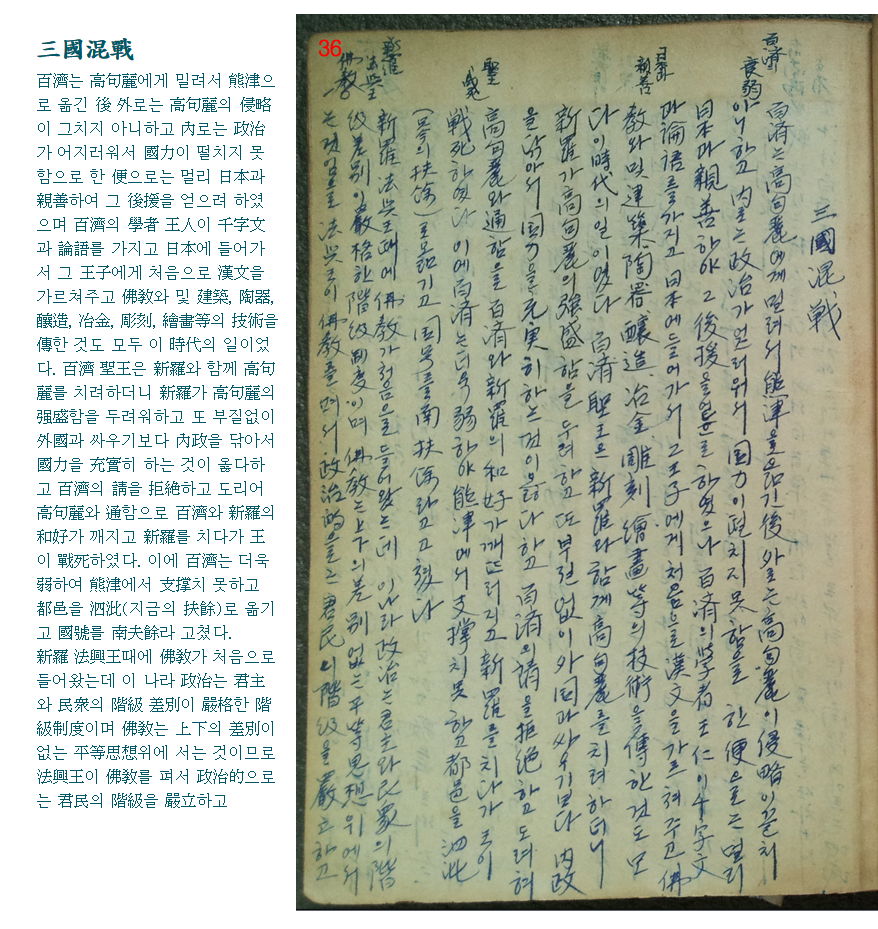 三國混戰
百濟는 高句麗에게 밀려서 熊津으
로 옮긴 後 外로는 高句麗의 侵略
이 그치지 아니하고 內로는 政治
가 어지러워서 國力이 떨치지 못
함으로 한 便으로는 멀리 日本과
親善하여 그 後援을 얻으려 하였
으며 百濟의 學者 王人이 千字文
과 論語를 가지고 日本에 들어가
서 그 王子에게 처음으로 漢文을
가르쳐주고 佛敎와 및 建築, 陶器,
釀造, 冶金, 彫刻, 繪畵等의 技術을
傳한 것도 모두 이 時代의 일이었
다. 百濟 聖王은 新羅와 함께 高句
麗를 치려하더니 新羅가 高句麗의
强盛함을 두려워하고 또 부질없이
外國과 싸우기보다 內政을 닦아서
國力을 充實히 하는 것이 옳다하
고 百濟의 請을 拒絶하고 도리어
高句麗와 通함으로 百濟와 新羅의
和好가 깨지고 新羅를 치다가 王
이 戰死하였다. 이에 百濟는 더욱
弱하여 熊津에서 支撑치 못하고
都邑을 泗沘(지금의 扶餘)로 옮기
고 國號를 南夫餘라 고쳤다.
新羅 法興王때에 佛敎가 처음으로
들어왔는데 이 나라 政治는 君主
와 民衆의 階級 差別이 嚴格한 階
級制度이며 佛敎는 上下의 差別이
없는 平等思想위에 서는 것이므로
法興王이 佛敎를 펴서 政治的으로
는 君民의 階級을 嚴立하고
36
三國混戰
百済
衰弱
百済는 高句麗에게 밀려서 熊津을 옮긴 後 外로는 高句麗이 侵略이 끝치
아니하고 内로는 政治가 언러워서 国力이 떨치지 못함을 한 便으로는 멀리
日本과 親善하야 그 後援을 얻으려 하였으나 百済의 学者 王仁이 千字文
日本과
親善
과 論語를 가지고 日本에 들어가서 그 王子에게 처음으로 漢文을 가르쳐주고 佛
教와 및 建築 陶器 醸造、冶金 彫刻 繪畫等의 技術을 傳한 것도 모
다 이 時代의 일이였다 百済 聖王은 新羅와 함께 高句麗를 치려 하더니
新羅가 高句麗의 强盛함을 두려하고 또 부질없이 外国과 싸우기보다 内政
을 닦아서 国力을 充実히 하는 것이 옳다 하고 百済의 請을 拒絶하고 도리혀
聖
戰死
高句麗와 通함을 百済와 新羅의 和好가 깨뜨러지고 新羅를 치다가 王이
戰死하였다 이에 百済는 더욱 弱하야 熊津에서 支撑치 못하고 都邑을 泗沘
(今의 扶餘)로 옮기고 国号를 南扶餘라고 고쳤다
新羅
法興王
佛教
新羅 法興王때에 佛教가 처음으로 들어왔는데 이 나라 政治는 君主와 民衆의 階
級差別이 嚴格한 階級制度이며 佛教는 上下의 差別 없는 平等思想 위에서
는 것임으로 法興王이 佛教를 펴서 政治的으로는 君民의 階級을 嚴立하고